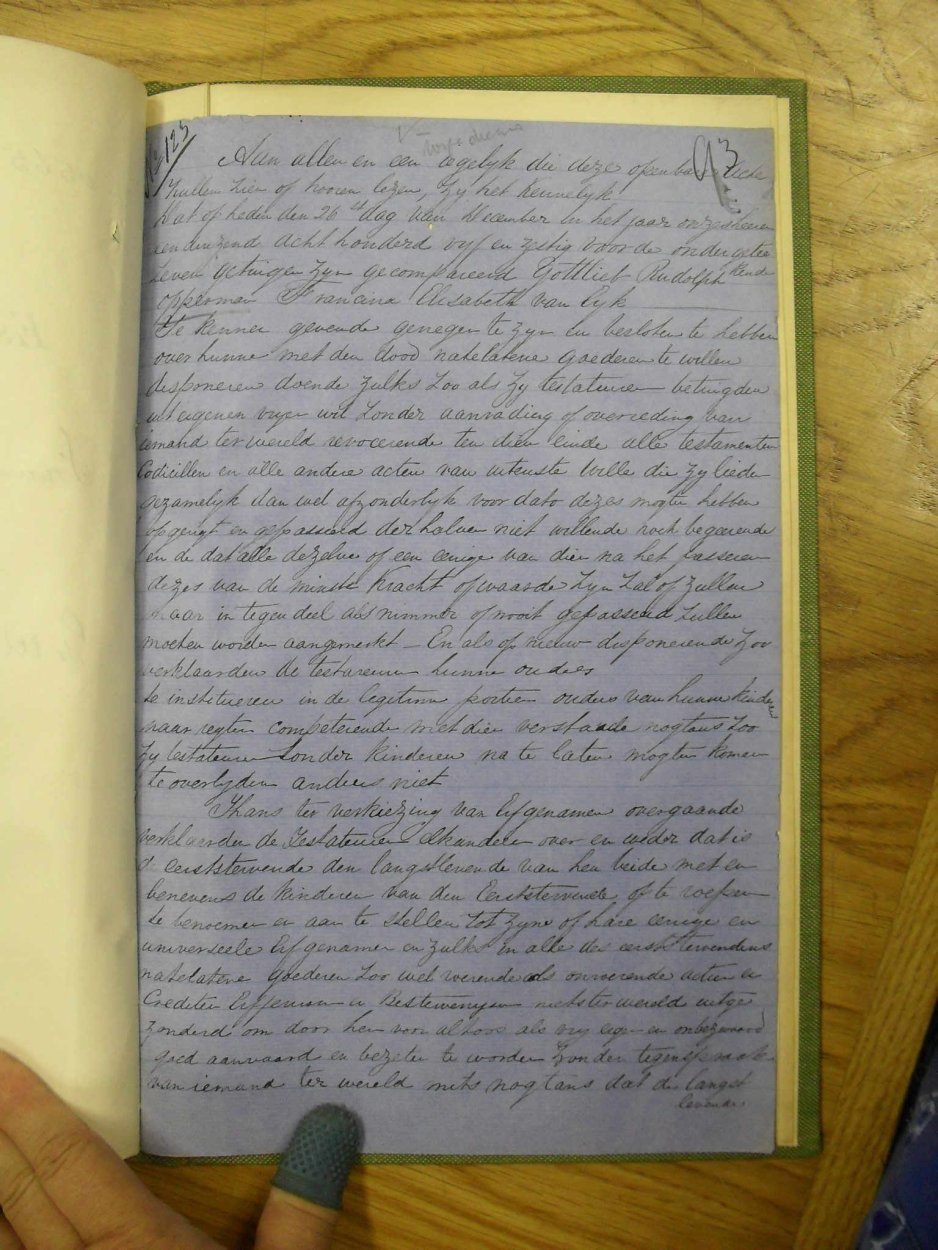 N 123
93
Aan allen en een iegelyk die deze openbare acte
zullen zien of hooren lezen, zy het kennelyk
dat op heden den 26 dag van December in het jaar onzes heeren
een duizend acht honderd vyf en zestig voor de ondergetee
kende
leven getuigen zyn gecompareerd Gottlieb Rudolph
opperman Francina Elisabeth van Eyk
Te kennen gevende genegen te zyn en besloten te hebben
over hunne met den dood natelatene goederen te willen
disponeren doende zulks zoo als zy testateuren betuigden
uit eigenen vryen wil zonder aanrading of overreding van
iemand ter wereld revocerende ten dien einde alle testamenten
Codicillen en alle andere acten van uiterste wille die zy lieden
gezamelyk dan wel afzonderlyk voor dato dezes mogten hebben
opgerigt en gepasseerd derhalven niet willende noch begeerende
en de dat alle dezelve of een eenige van dien na het passeren
dezes van de minste kracht of waarde zyn zal of zullen
maar in tegendeel als nimmer of nooit gepasseerd zullen
moeten worden aangemerkt – En als op nieuw disponerende zoo
verklaarden de testateuren hunne ouders
te institueren in de legitime portien ouders van hunne kinderen
naar regten competerende met dien verstande nogtans zoo
zy testateuren zonder kinderen na te laten mogten komen
te overlyden anders niet
Thans ter verkiezing van Erfgenamen overgaande
verklaarden de Testateuren elkanderen over en weder dat is
d eerststervende den langstlevende van hen beide met en
benevens de kinderen van den Eerststervende, of te roepen
te benoemen en aan te stellen tot zyne of hare eenige en
universeele Erfgenamen en zulks in alle des eerststervendens
natelatene goederen zoo wel roerende als onroerende actien en
Crediten Erffenissen en Bestervenissen niets ter wereld uitge
zonderd om door hen voor altoos als vry eigen en onbezwaard
goed aanvaard en bezeten te worden zonder tegenspraak
van iemand ter wereld mits nogtans dat de langst
levende